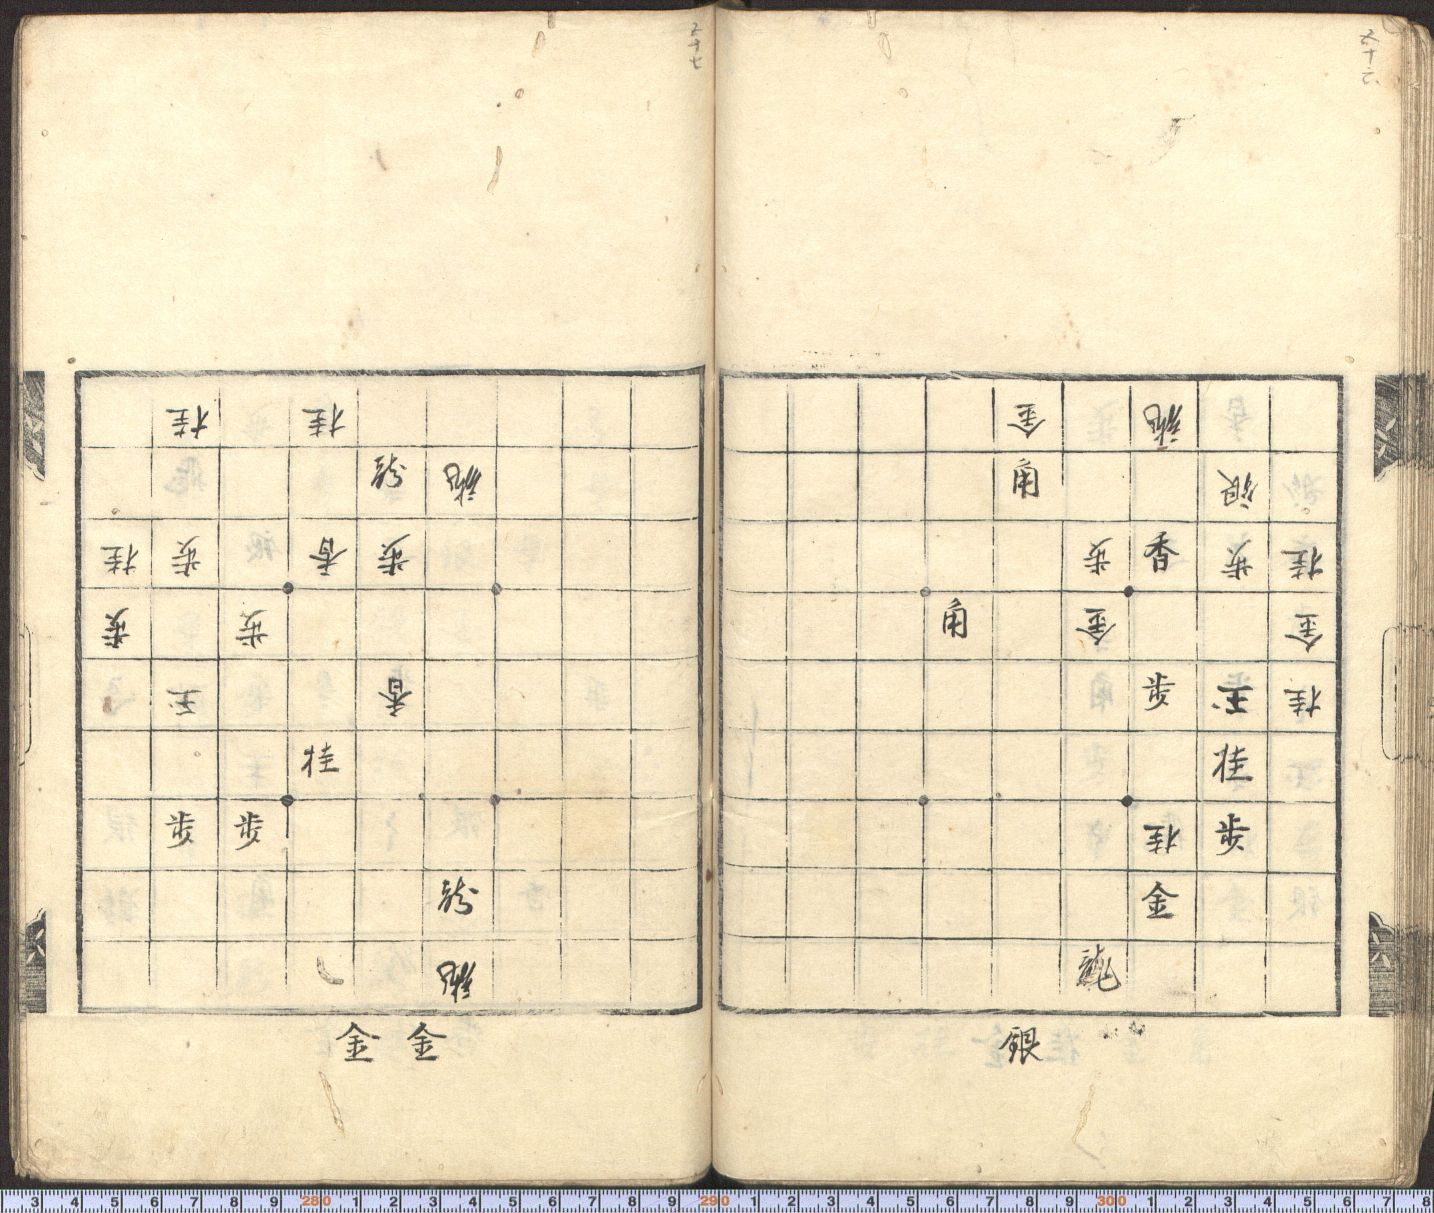 五十六
金 龍
角 銀
歩 香 歩 桂
角 金 金
歩 玉 桂
桂
桂 歩
金
飛
銀
五十七
桂 桂
龍
桂 歩 香 歩
歩 歩
玉 香
桂
歩 歩
金 金
3 4 5 6 7 8 9 280 1 2 3 4 5 6 7 8 9 290 1 2 3 4 5 6 7 8 9 300 1 2 3 4 5 6 7 8